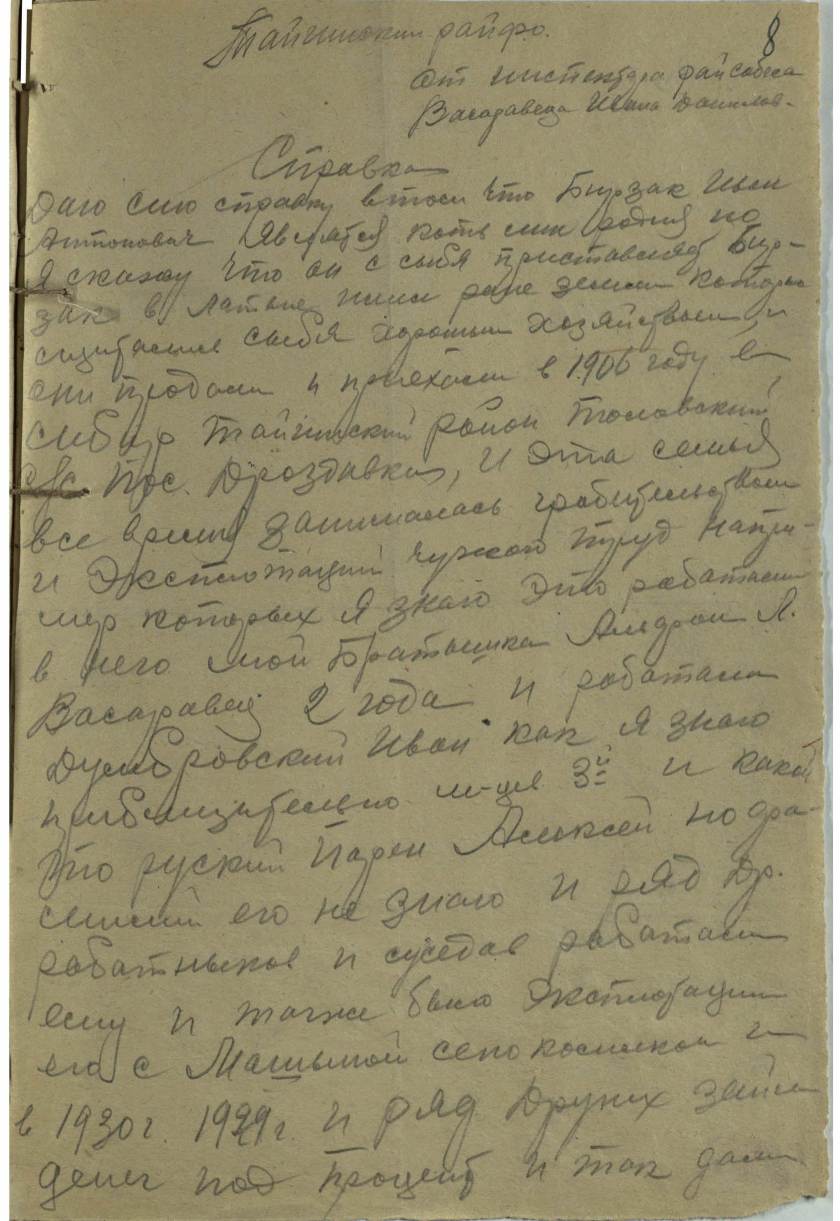 8
Тайгинский райфо.
От инспектора райсобеса
Васаравеца Ивана Данилов-
Справка
Даю сию справку втом что Бирзак Иван
Антонович Является хотя мне родня но
Я скажу что он с сыбя приставляет Бир-
зак в Латвие ране земли которы
сищитались сыбя хорошым хозяйством и
они продали и приехали в 1906 году в
Сибирь Тайгинский район Толовский
с/с пос. Дроздавка, И Эта семья
все время занималась грабительством
и Эксплотацый чужой труд напри-
мер которых я знаю Это работали
в него мой Братышка Альдрон Л.
Васаравец 2 года и работали
Думбровский Иван как Я знаю
приблизительно м-цев 3й и какой
то руский Парен Алексей но фа-
милий его не знаю И ряд Др.
работныков и суседав работали
ему и также было Эксплотации
его с Машыной сенокосилкой
в 1930г. 1929г. и ряд Других займ
денег под Процент и так дали